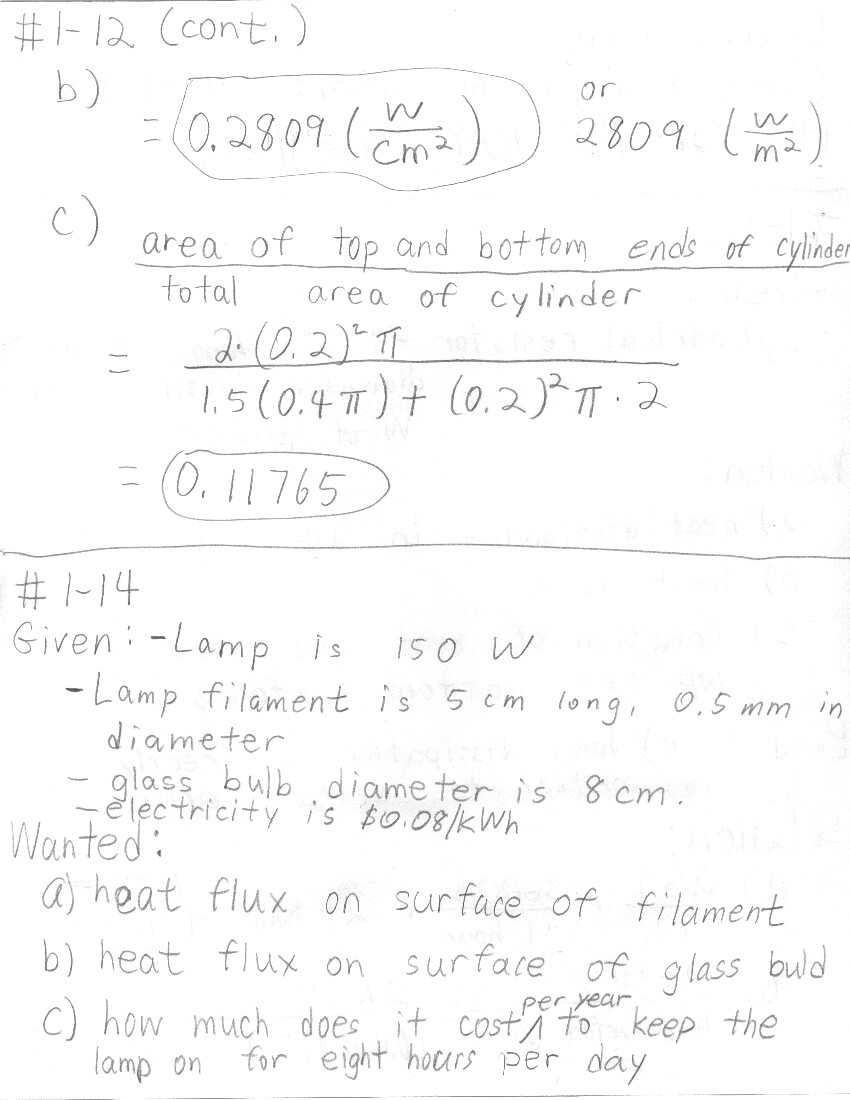 #1-12 (cont.)
b)
= 0.2809 (W/cm²) or 2809 (W/m²)
c)
area of top and bottom ends of cylinder
total area of cylinder
= 2·(0.2)²π / 1.5(0.4π) + (0.2)²π·2
= 0.11765
#1-14
Given: -Lamp is 150 W
-Lamp filament is 5 cm long, 0.5 mm in
diameter
- glass bulb diameter is 8 cm.
-electricity is $0.08/kWh
Wanted:
a) heat flux on surface of filament
b) heat flux on surface of glass buld
c) how much does it cost per year to keep the
lamp on for eight hours per day